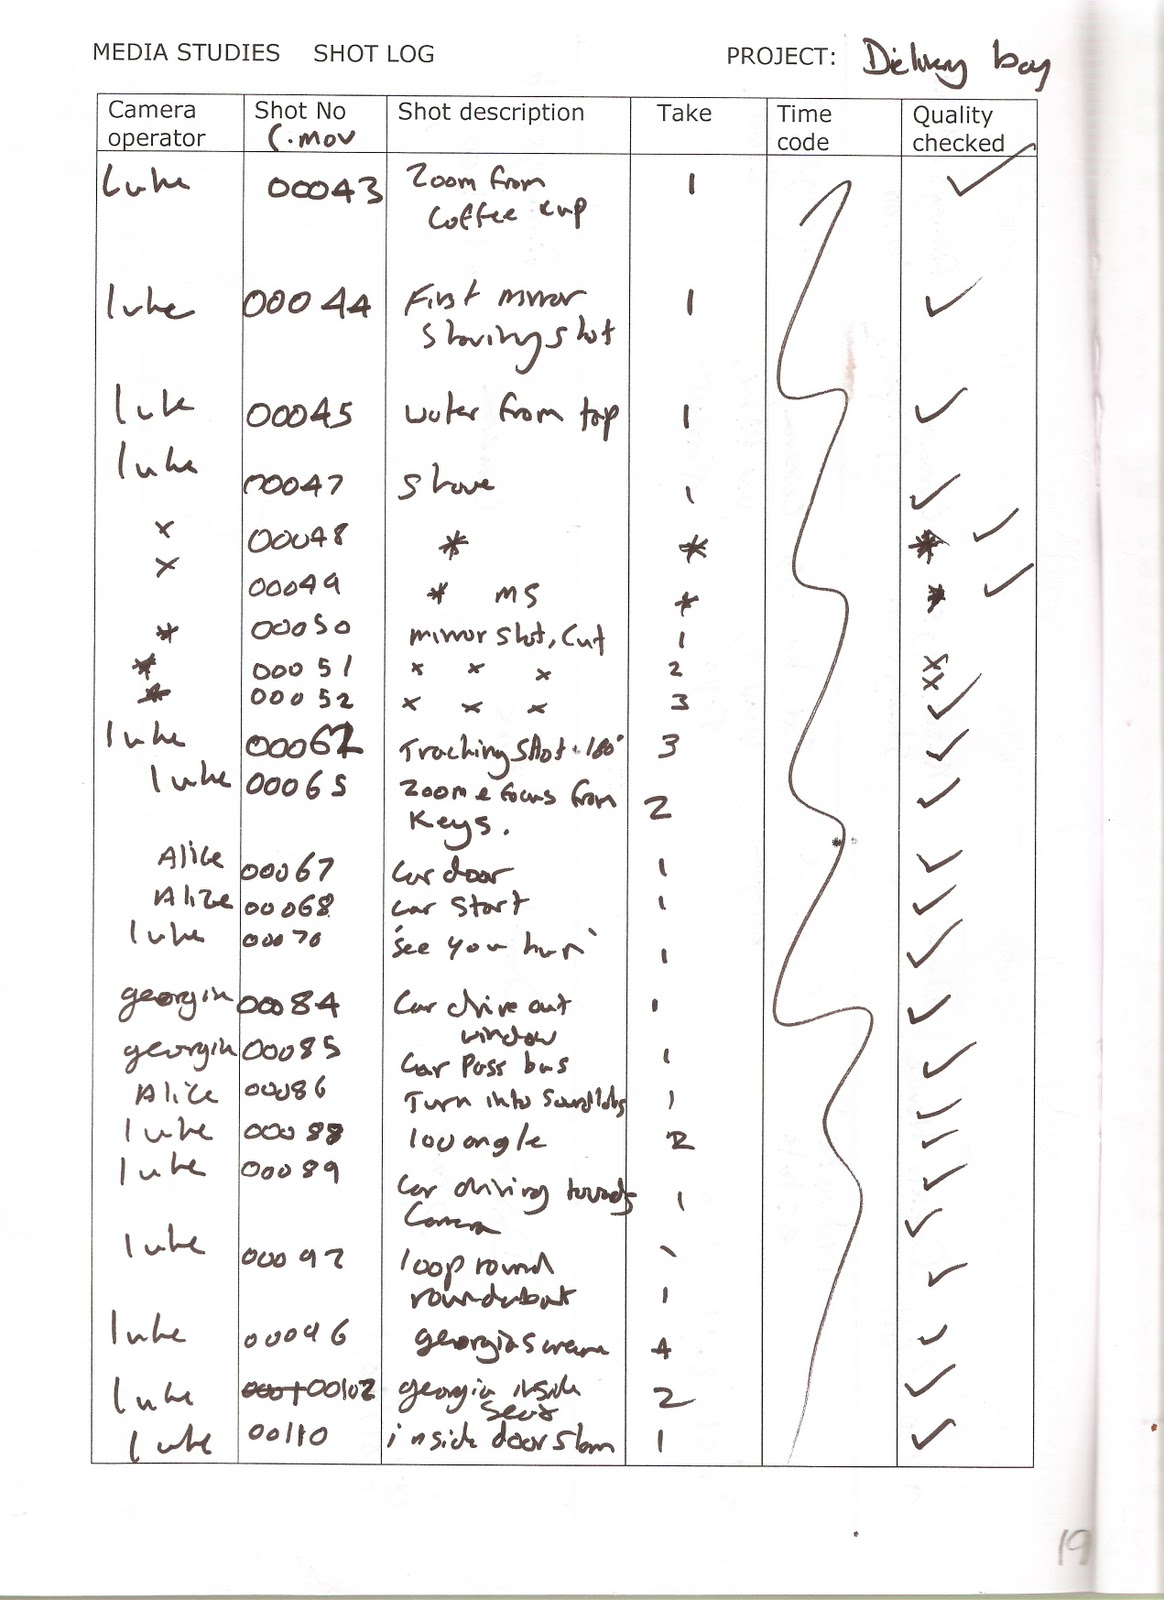 MEDIA STUDIES SHOT LOG PROJECT: Delivery boy
Camera operator Shot No (.mov Shot description Take Time code Quality checked
Luke 00043 Zoom from 1 ✓
coffee cup
luke 00044 First mirror 1 ✓
shaving shot
luke 00045 water from tap 1 ✓
luke 00047 shave 1 ✓
x 00048 * * * ✓
x 00049 * MS * * ✓
* 00050 mirror shot, Cut 1
* 00051 x x x 2 x
* 00052 x x x 3 x ✓
luke 00062 Tracking shot + 180° 3 ✓
luke 00065 Zoom & focus from 2 ✓
Keys.
Alice 00067 Car door 1 ✓
Alice 00068 Car start 1 ✓
luke 00070 'see you hun' 1 ✓
georgia 00084 Car drive out 1 ✓
window
georgia 00085 Car Pass bus 1 ✓
Alice 00086 Turn into 1 ✓
luke 00088 low angle 2 ✓
luke 00089 Car driving towards 1 ✓
Camera ✓
luke 00092 loop round
roundabout 1 ✓
luke 00096 georgia scream 4 ✓
luke 00102 georgia inside 2 ✓
seat
luke 00110 inside door slam 1 ✓
19